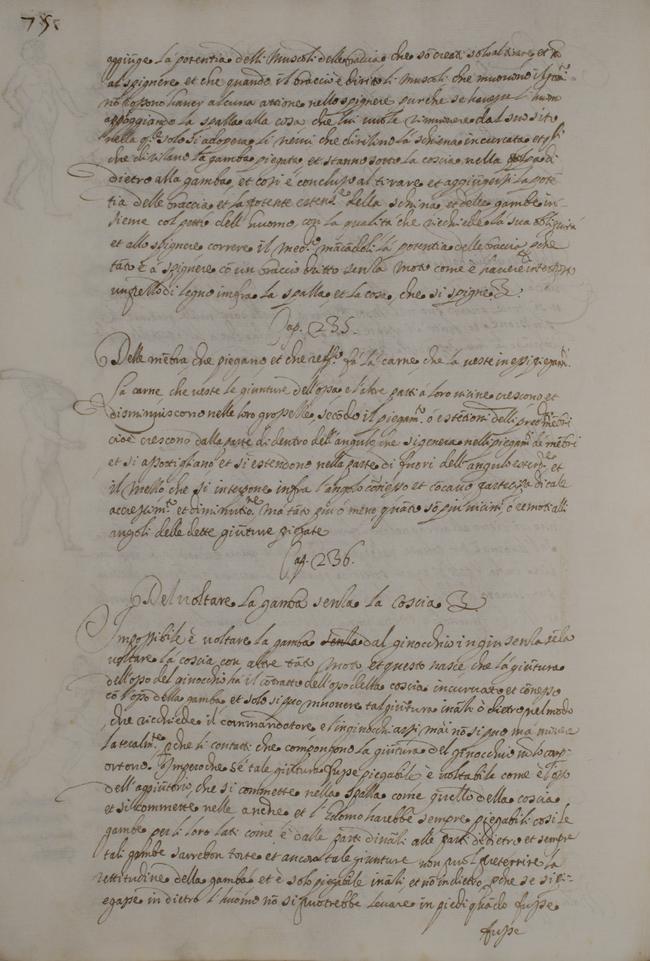 75.
aggiūge la potentia delli Muscoli delle braccia che sō creati solo al tirare et nō
al spignere et che quando il braccio è diritto li Muscoli che muovono il
nō possono haver alcuna attione nello spignere
appoggiando la spalla alla cosa che lui vuole rimuovere dal suo sito
nella solo si adopera li nervi che dirizano la schiena incurvata et
che dirizano la gamba piegata et stanno sotto la coscia nella polpa di
dietro alla gamba, et cosi è concluso al tirare et aggiūgersi la potē
tia delle braccia et la potente della schina et delle gambe in
sieme col petto dell' huomo, con la qualità che richiede la sua obliquità
et allo spignere correre il med.º mācādoli la potentia delle braccia, pche
tāto è à spignere cō un braccio dritto senza Moto come è havere interposto
un pezzo di legno infra la spalla, et la cosa, che si spigne.
Cap. 235.
Delle mēbra che piegano et che fà la carne, che la veste in esso piegam.to
La carne che veste le giunture dell'ossa e l'altre parti à loro vicine crescono et
disminuiscono nelle loro grossezze secōdo il piegam.to ò estētioni delli predetti mēbri
cioè crescono dalla parte di dentro dell'angulo che si genera nelli piegam.ti de mēbri
et si assottigliano et si estendono nella parte di fuori dell' angulo et
il mezzo che si interpone infra l'angolo cōvesso et cocavo partecipa di tale
accrescim.to et diminutione, ma tāto più ò meno quāto sō più vicini ò remoti alli
angoli delle dette giūture piegate
Cap. 236.
Del voltare la gamba senza la coscia
Impossibile è voltare la gamba dal ginocchio in giu senza
voltare la coscia con altre tāto Moto. et questo nasce che la giūtura
dell'osso del ginocchio hà il cōtatto dell'osso della coscia incurvato et cōnesso
cō l'osso della gamba et solo si puo muovere tal giūtura ināzi ò dietro nel modo
che richiede il cammnadotore e l'inginocchiarsi mai nō si puo
lateralm.te pche li contatti che compongono la giūtura del ginocchio nō lo comp
ortono. Imperoche se tale giūtura fusse piegabile è voltabile come è l'osso
dell'aggiūtorio, che si commette nella spalla come quello della coscia
et si commette nelle anche et l'huomo harebbe sempre piegabili cosi le
gambe per li loro lati come è dalle parti dināzi alle parti di dietro et sempre
tali gambe sarebbon torte et ancora tale giunture non puo preterrire la
rettitudine della gamba et è solo piegabile ināzi et nō indietro, pche se si pi=
egasse in dietro l'huomo nō si potrebbe levare in piedi quādo fusse
fusse